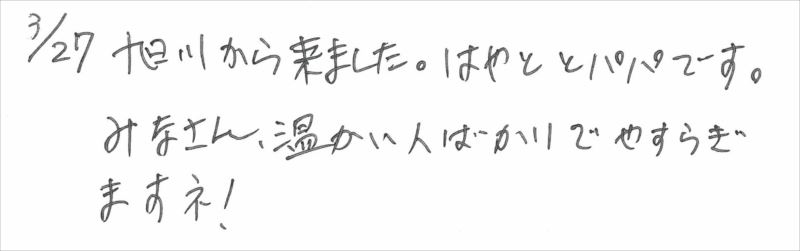 3/27 旭川から来ました。はやととパパです。
みなさん、温かい人ばかりでやすらぎ
ますネ!